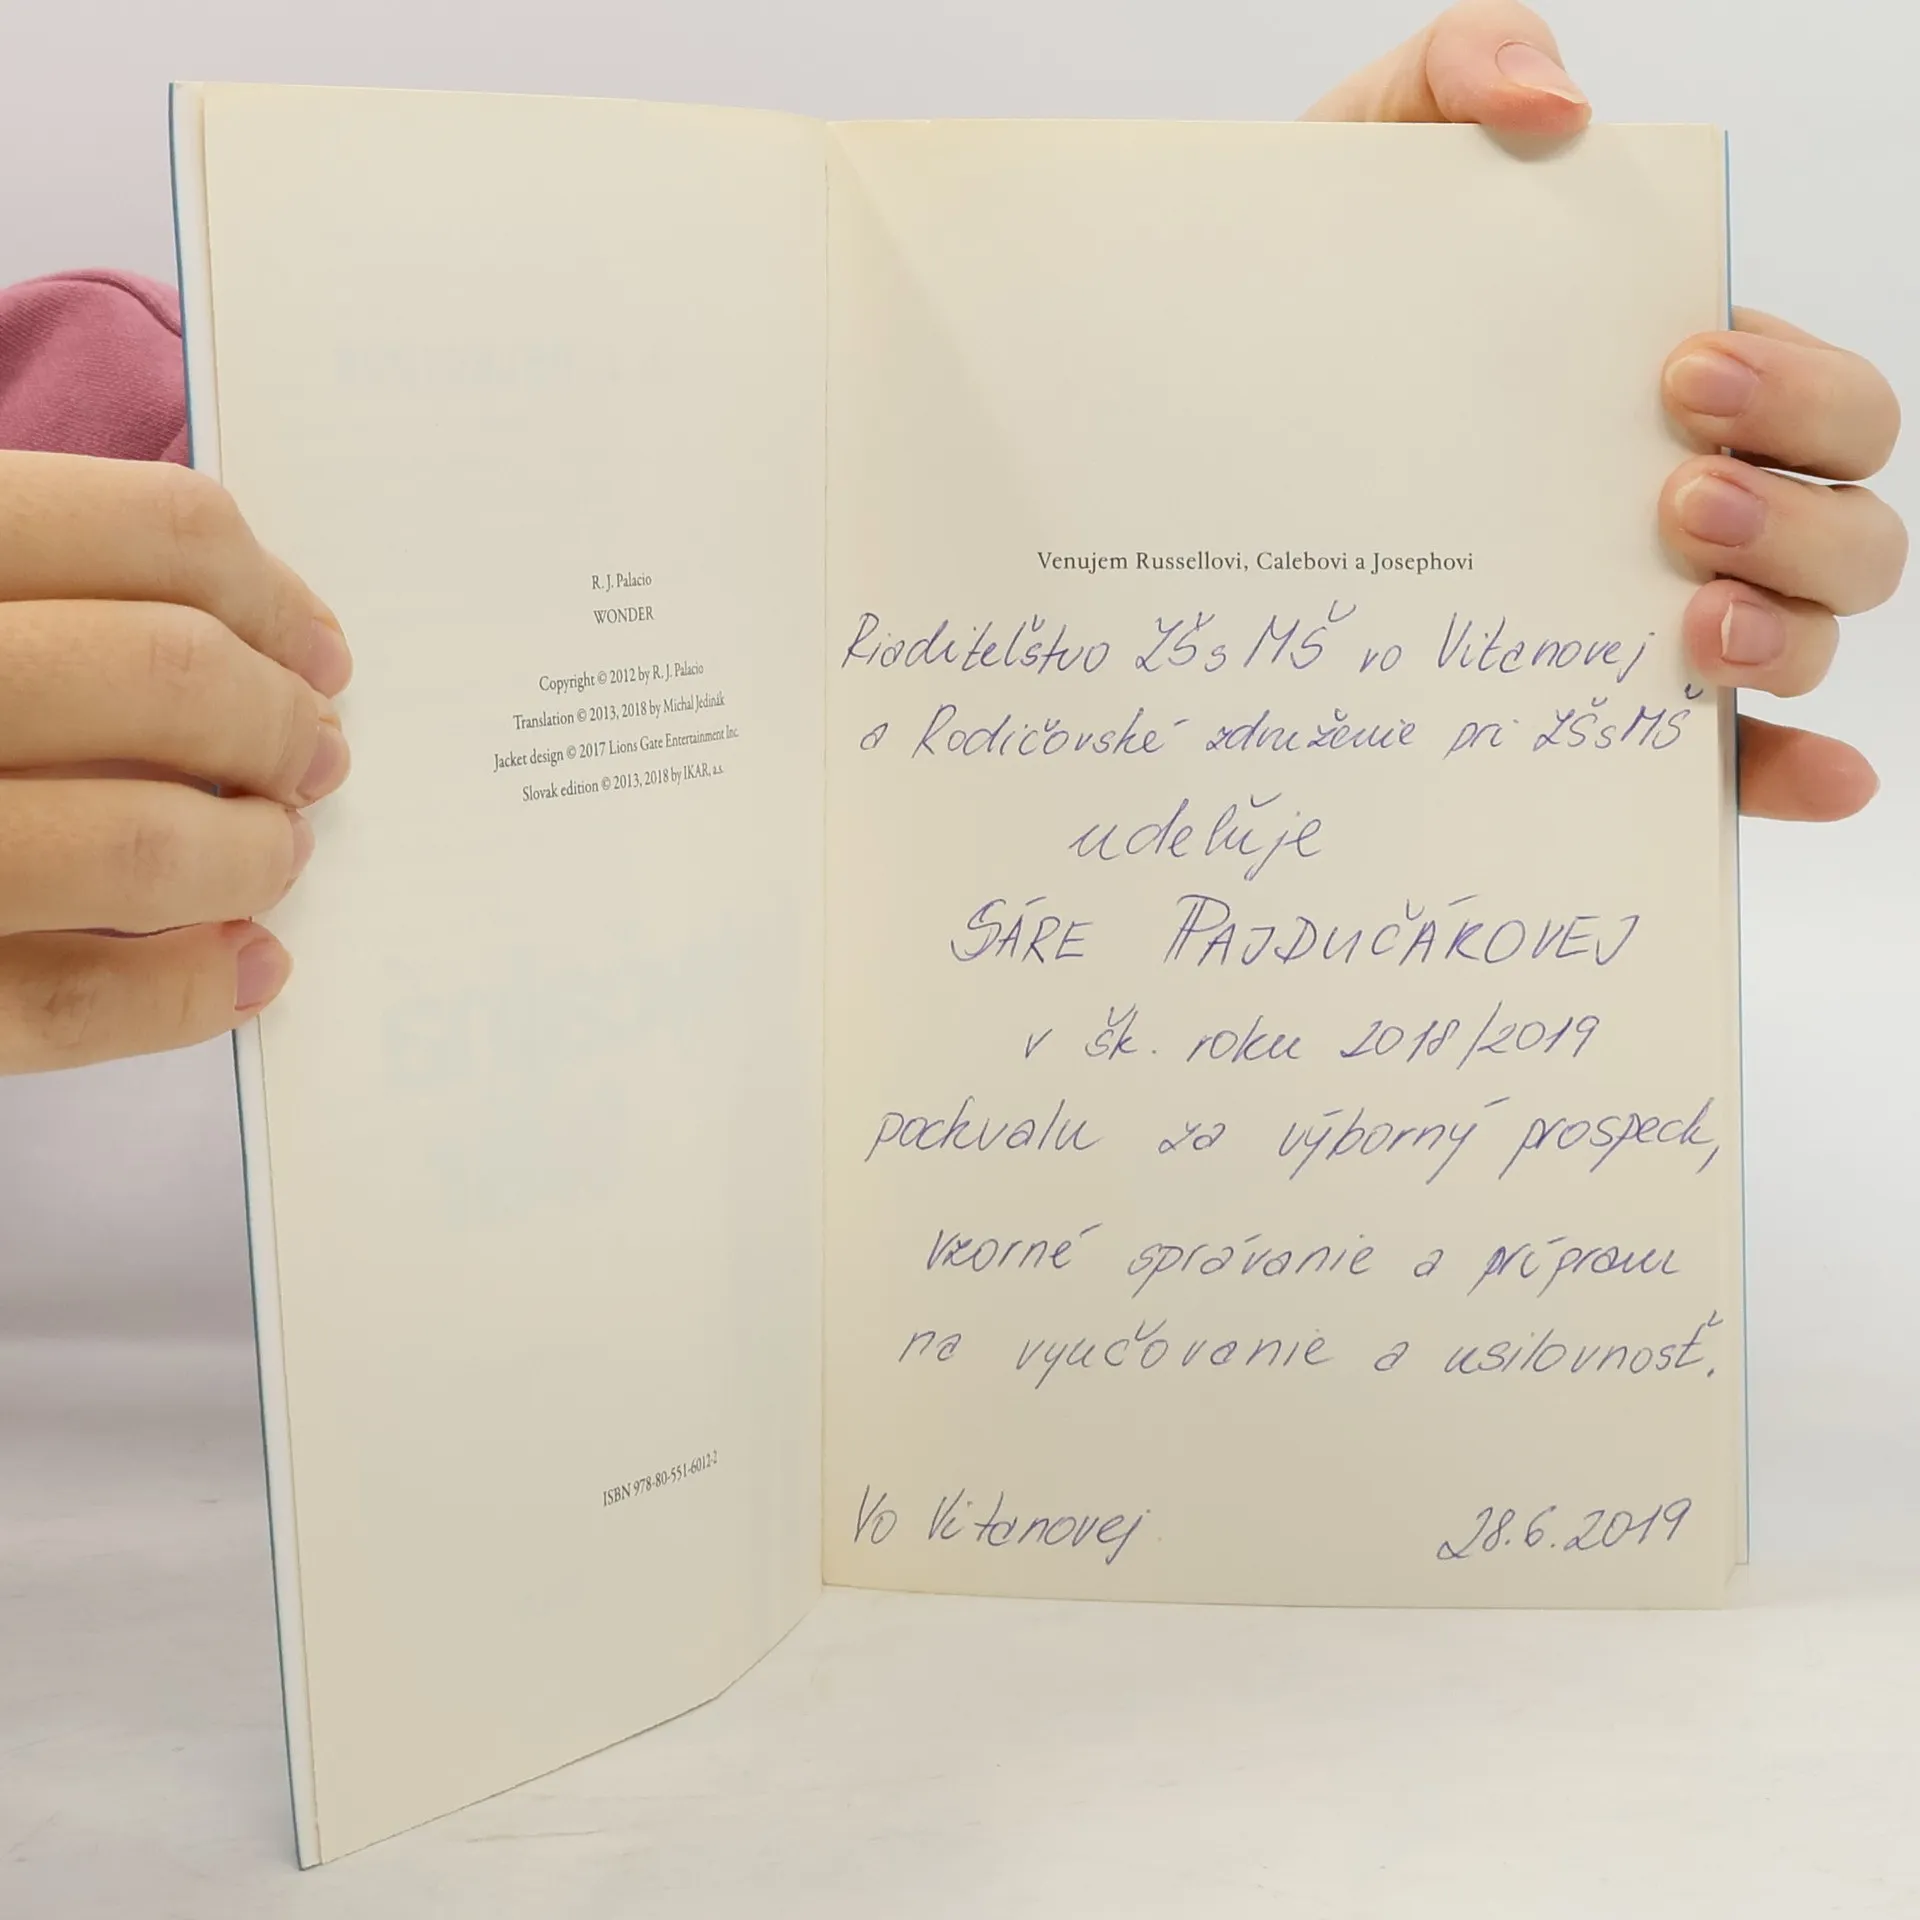 R. J. Palacio
WONDER
Copyright © 2012 by R. J. Palacio
Translation © 2013, 2018 by Michal Jedinák
Jacket design © 2017 Lions Gate Entertainment Inc.
Slovak edition © 2013, 2018 by IKAR, a.s.
ISBN 978-80-551-6012-2
Venujem Russellovi, Calebovi a Josephovi
Riaditeľstvo ZŠ s MŠ vo Vitanovej
a Rodičovské združenie pri ZŠ s MŠ
udeľuje
SÁRE PAJDUČÁKOVEJ
v šk. roku 2018/2019
pochvalu za výborný prospech,
vzorné správanie a prípravu
na vyučovanie a usilovnosť.
Vo Vitanovej 28.6.2019